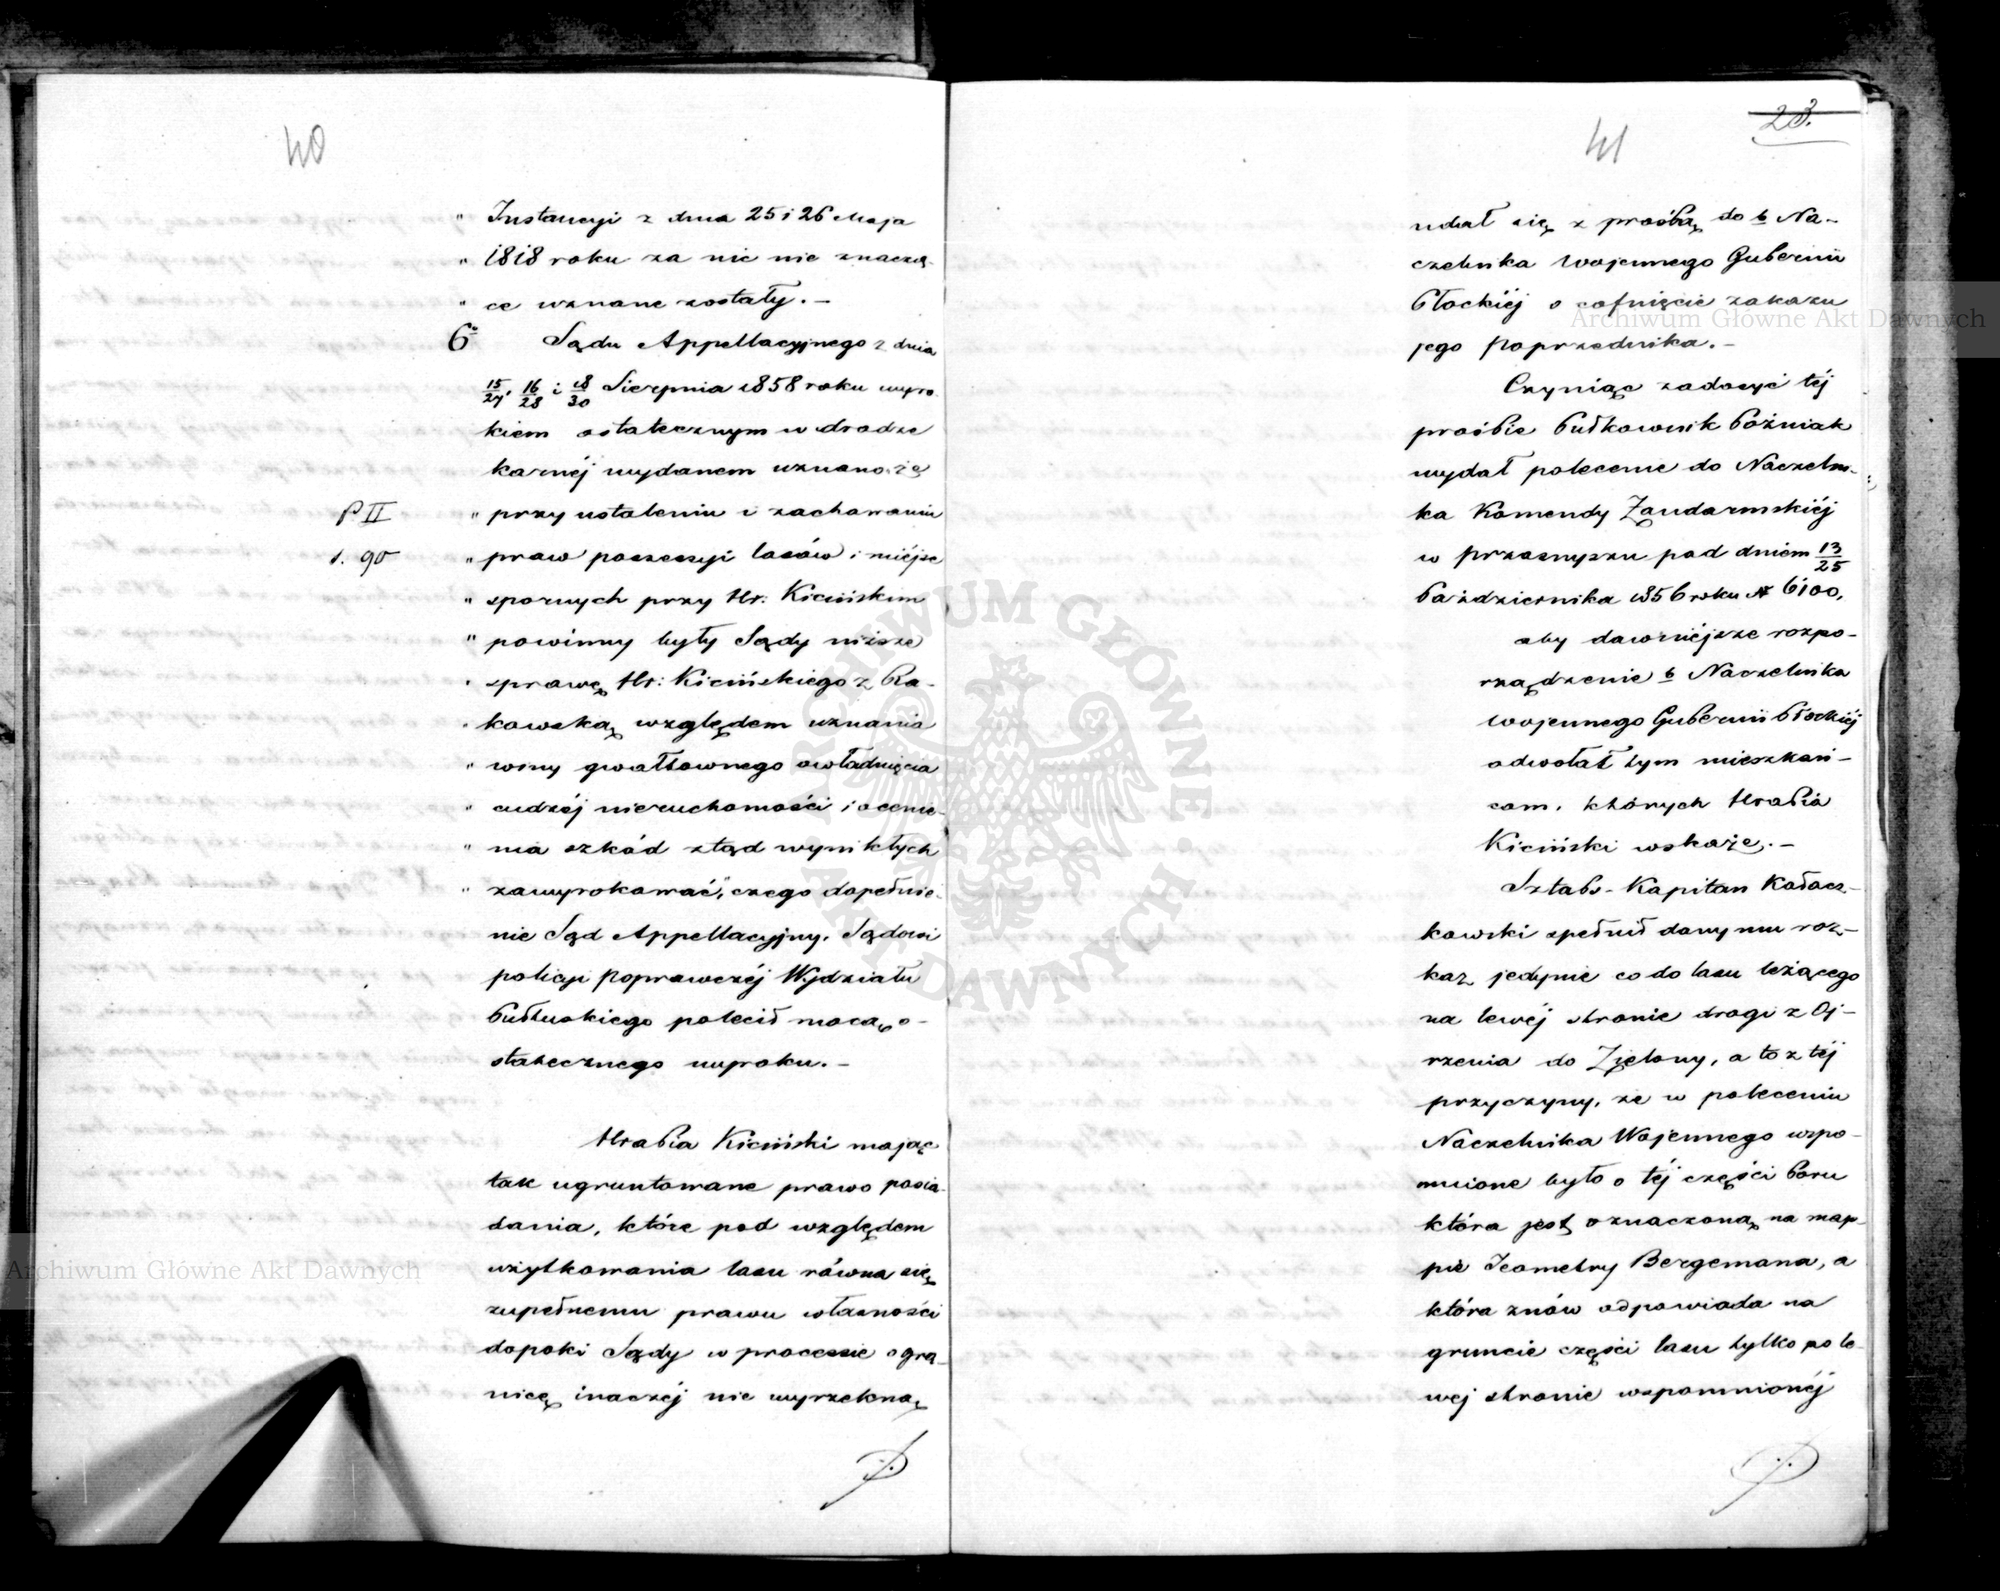 40
„ Instancyi z dnia 25 i 26 Maja
„ 1818 roku za nic nie znaczą-
„ ce uznane zostały. –
6° Sądu Appellacyjnego z dnia
15/27, 16/28 i 18/30 Sierpnia 1858 roku wyro-
kiem ostatecznym w drodze
karnéj wydanem uznano że
P II „ przy ustaleniu i zachowaniu
s. 90 „ praw possessyi lasów i miéjsc
„ spornych przy Hr: Kicińskim
„ powinny były Sądy niższe
„ sprawę Hr: Kicińskiego z Ra-
„ kowską względem uznania
„ winy gwałtownego owładnięcia
„ cudzéj nieruchomości i ocenie-
„ nia szkód ztąd wynikłych
„ zawyrokować," czego dopełnie-
nie Sąd Appellacyjny, Sądowi
policyi Poprawczéj Wydziału
Pułtuskiego polecił mocą o-
statecznego wyroku. –
Hrabia Kiciński mając
tak ugruntowane prawo posia-
dania, które pod względem
użytkowania lasu równa się
zupełnemu prawu własności
dopoki Sądy w processie o gra-
nicę inaczéj nie wyrzekną
23.
41
udał się z prośbą do b Na-
czelnika Wojennego Gubernii
Płockiéj o cofnięcie zakazu
jego poprzednika. –
Czyniąc zadosyć téj
prośbie Pułkownik Poźniak
wydał polecenie do Naczelni-
ka Komendy Żandarmskiéj
w Przasnyszu pod dniem 13/25
Października 1856 roku № 6100,
aby dawniéjsze rozpo-
rządzenie b Naczelnika
Wojennego Gubernii Płockiéj
odwołał tym mieszkań-
com, których Hrabia
Kiciński wskaże. –
Sztabs-Kapitan Kołacz-
kowski spełnił dany mu roz-
kaz jedynie co do lasu leżącego
na lewéj stronie drogi z Oj-
rzenia do Zielony, a to z téj
przyczyny, że w poleceniu
Naczelnika Wojennego wspo-
mnione było o téj części boru
która jest oznaczoną na map-
pie Jeometry Bergemana, a
która znów odpowiada na
gruncie części lasu tylko po le-
wej stronie wspomnionéj
Archiwum Główne Akt Dawnych
Archiwum Główne Akt Dawnych
ARCHIWUM GŁÓWNE AKT DAWNYCH